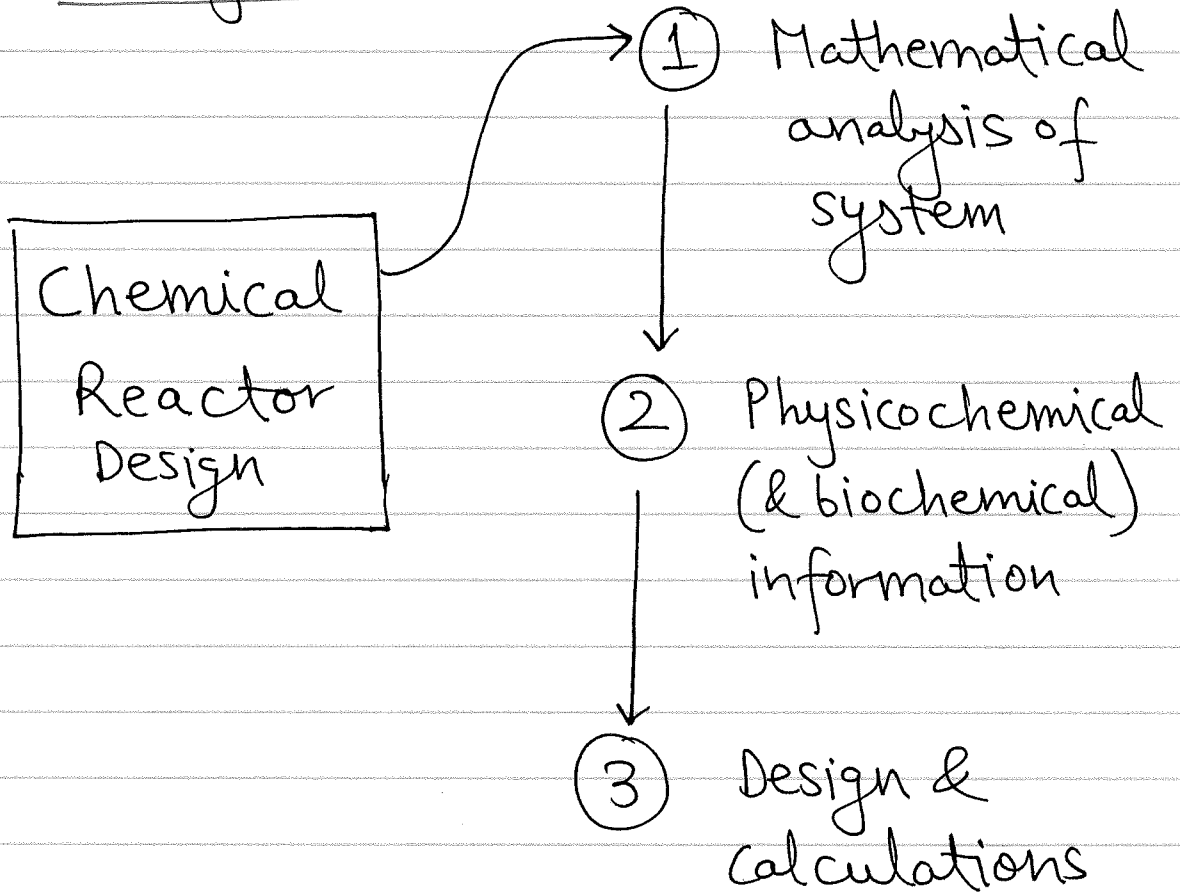 Chemical
Reactor
Design
① Mathematical
analysis of
system
② Physicochemical
(& biochemical)
information
③ Design &
calculations